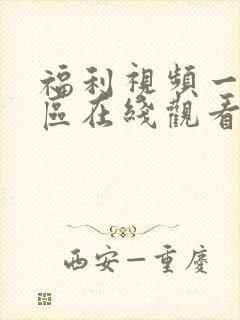 福利視頻一
區在綫觀看
西安—重慶